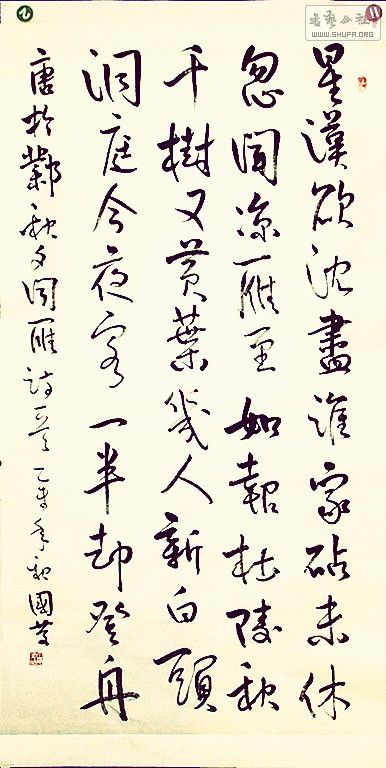 書藝公社
WWW.SHUFA.ORG
星漢欲沈盡誰家砧未休
忽聞凉雁至如報杜陵秋
千樹又黃葉幾人新白頭
洞庭今夜客一半却登舟
唐於鄴秋夕聞雁詩一首乙未年秋國